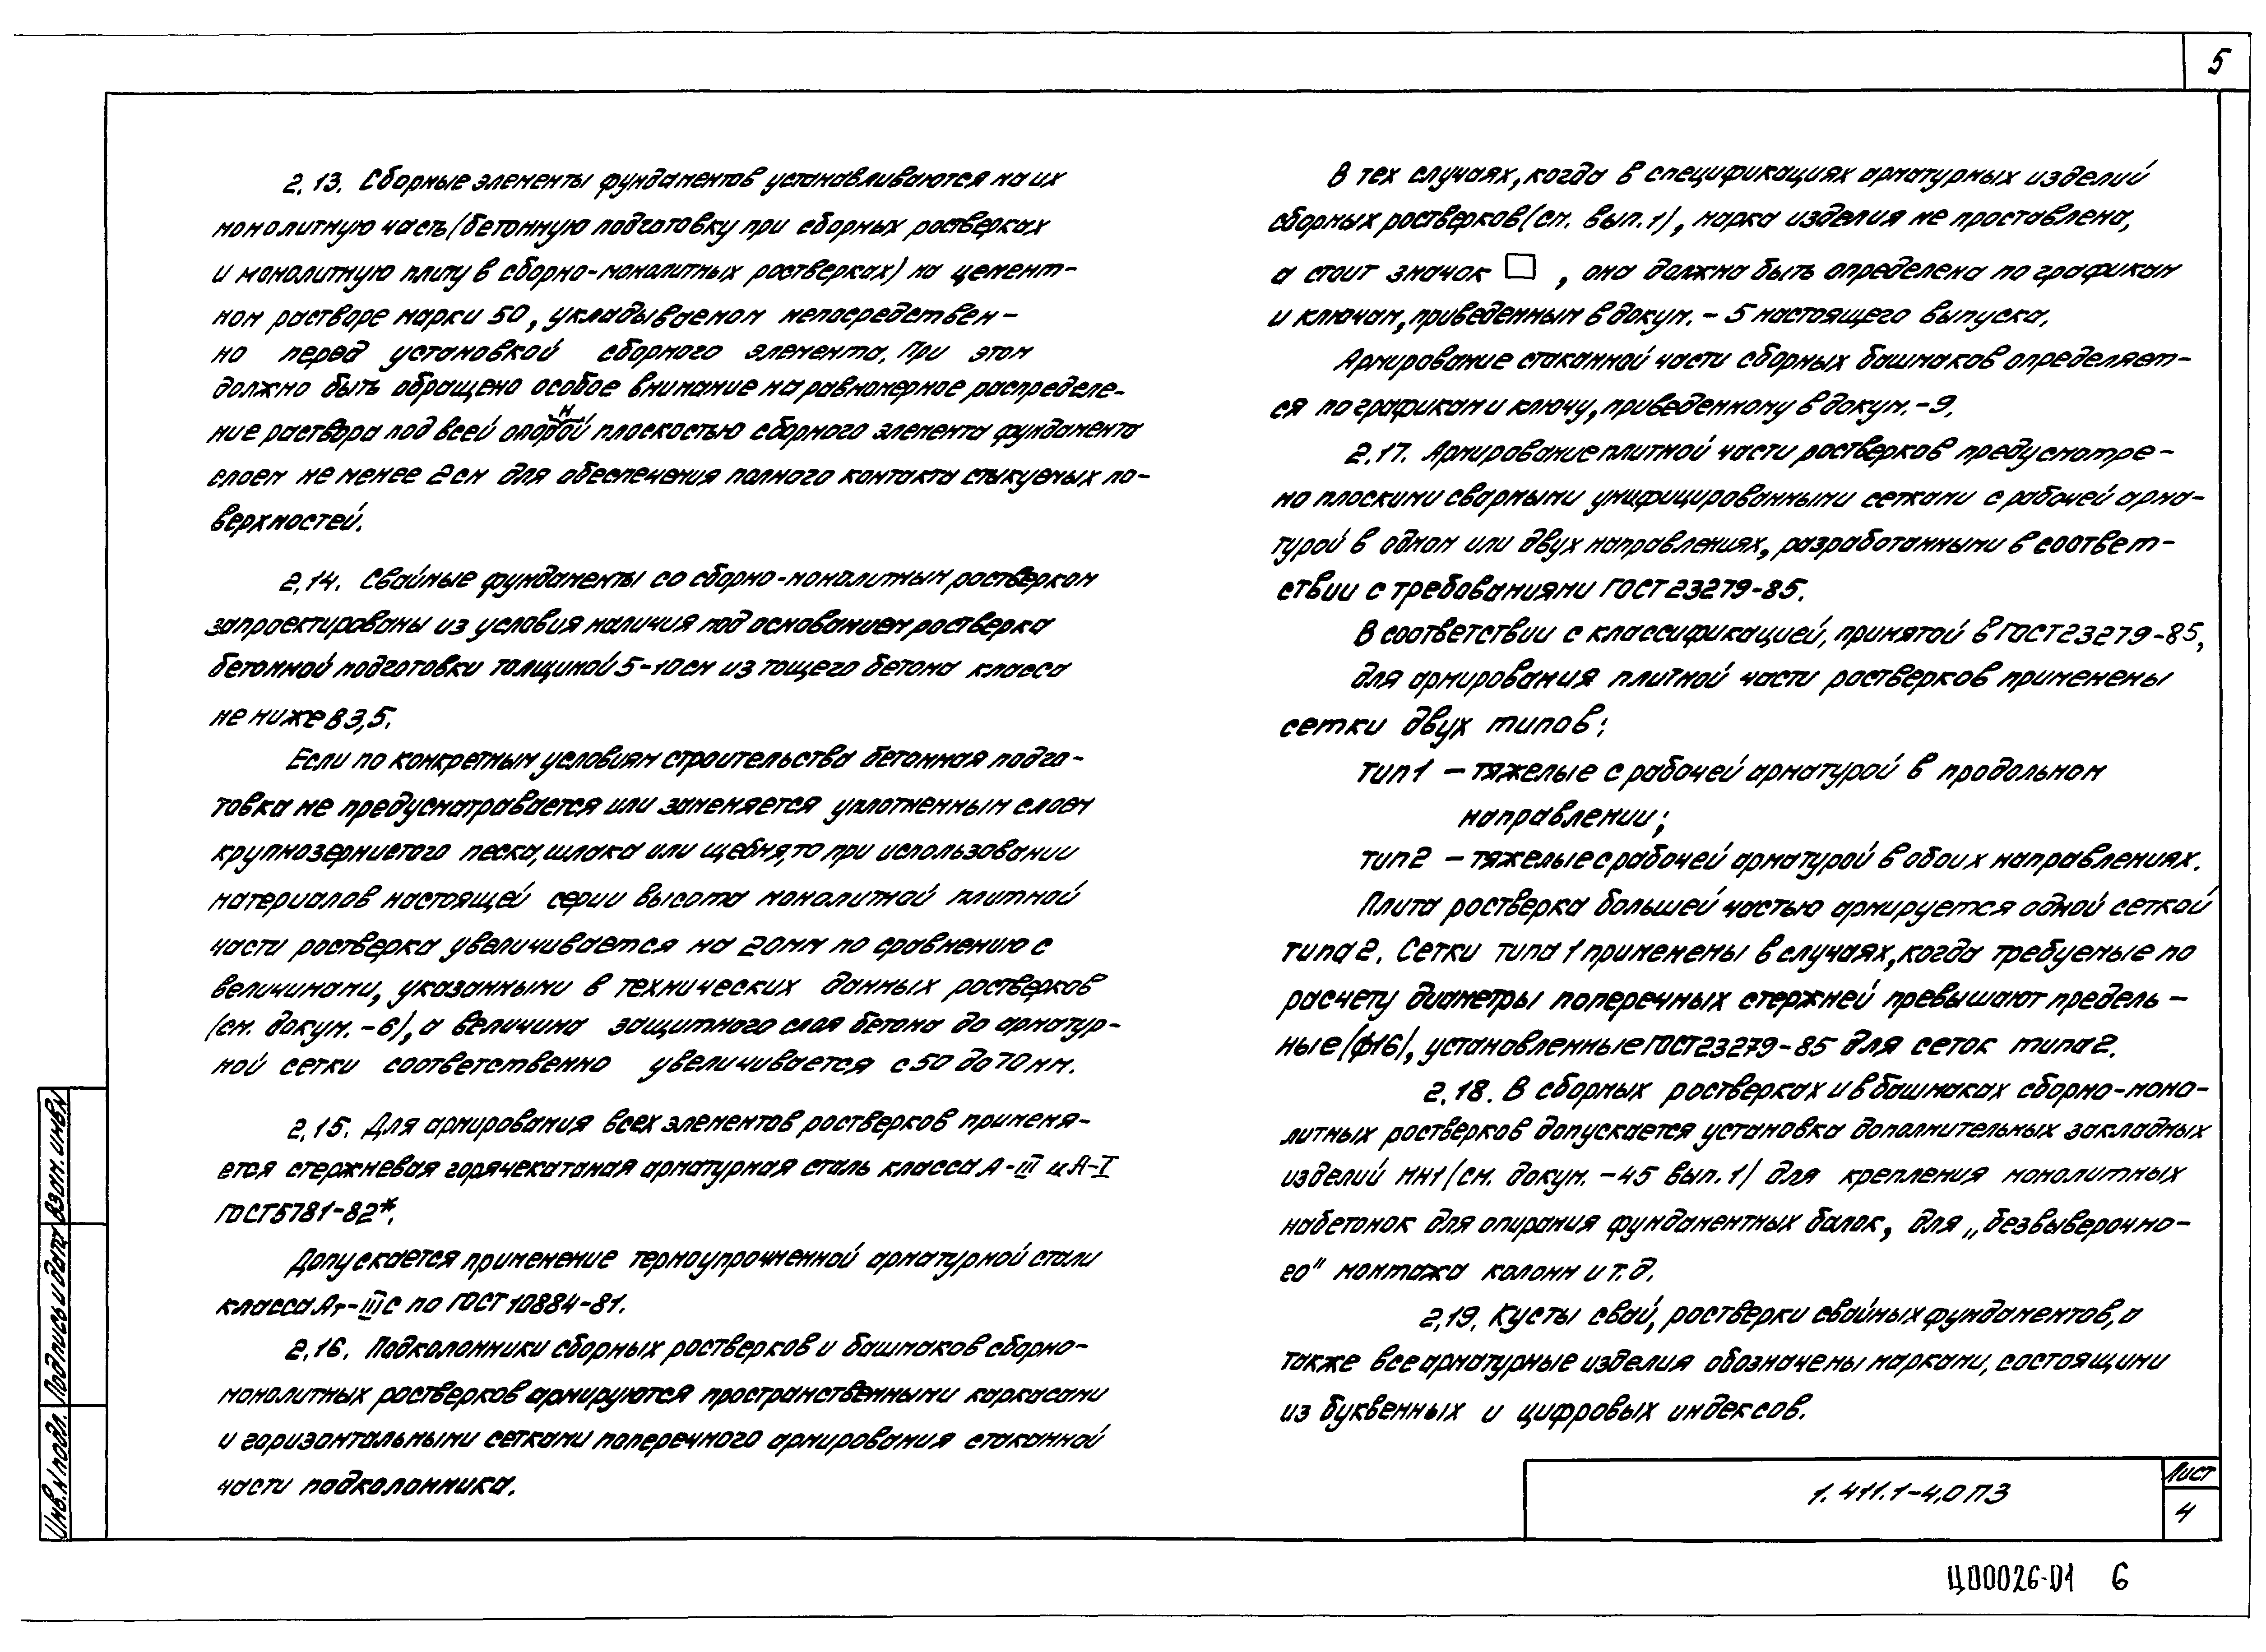 5
2.13. Сборные элементы фундаментов устанавливаются на их
монолитную часть (бетонную подготовку при сборных ростверках
и монолитную плиту в сборно-монолитных ростверках) на цемент-
ном растворе марки 50, укладываемом непосредствен-
но перед установкой сборного элемента. При этом
должно быть обращено особое внимание на равномерное распределе-
ние раствора под всей опорной плоскостью сборного элемента фундамента
слоем не менее 2 см для обеспечения полного контакта стыкуемых по-
верхностей.
2.14. Свайные фундаменты со сборно-монолитным ростверком
запроектированы из условия наличия под основанием ростверка
бетонной подготовки толщиной 5-10 см из тощего бетона класса
не ниже В3,5.
Если по конкретным условиям строительства бетонная подго-
товка не предусматривается или заменяется уплотненным слоем
крупнозернистого песка, шлака или щебня, то при использовании
материалов настоящей серии высота монолитной плитной
части ростверка увеличивается на 20 мм по сравнению с
величинами, указанными в технических данных ростверков
(см. докум. -6), а величина защитного слоя бетона до арматур-
ной сетки соответственно увеличивается с 50 до 70 мм.
2.15. Для армирования всех элементов ростверков применя-
ется стержневая горячекатаная арматурная сталь класса А-III и А-I
ГОСТ 5781-82*.
Допускается применение термоупрочненной арматурной стали
класса Ат-IIIС по ГОСТ 10884-81.
2.16. Подколонники сборных ростверков и башмаков сборно-
монолитных ростверков армируются пространственными каркасами
и горизонтальными сетками поперечного армирования стаканной
части подколонника.
В тех случаях, когда в спецификациях арматурных изделий
сборных ростверков (см. вып. 1), марка изделия не проставлена,
а стоит значок □, она должна быть определена по графикам
и ключам, приведенным в докум. - 5 настоящего выпуска.
Армирование стаканной части сборных башмаков определяет-
ся по графикам и ключу, приведенному в докум. -9.
2.17. Армирование плитной части ростверков предусмотре-
но плоскими сварными унифицированными сетками с рабочей арма-
турой в одном или двух направлениях, разработанными в соответ-
ствии с требованиями ГОСТ 23279-85.
В соответствии с классификацией, принятой в ГОСТ 23279-85,
для армирования плитной части ростверков применены
сетки двух типов:
тип 1 - тяжелые с рабочей арматурой в продольном
направлении;
тип 2 - тяжелые с рабочей арматурой в обоих направлениях.
Плита ростверка большей частью армируется одной сеткой
типа 2. Сетки типа 1 применены в случаях, когда требуемые по
расчету диаметры поперечных стержней превышают предель-
ные (ф16), установленные ГОСТ 23279-85 для сеток типа 2.
2.18. В сборных ростверках и в башмаках сборно-моно-
литных ростверков допускается установка дополнительных закладных
изделий МН1 (см. докум. -45 вып. 1) для крепления монолитных
набетонок для опирания фундаментных балок, для „безвыверочно-
го" монтажа колонн и т.д.
2.19. Кусты свай, ростверки свайных фундаментов, а
также все арматурные изделия обозначены марками, состоящими
из буквенных и цифровых индексов.
Взам. инв. N
Подпись и дата
Инв. N подл.
1.411.1-4.0 ПЗ
Лист
4
Ц00026-01 6